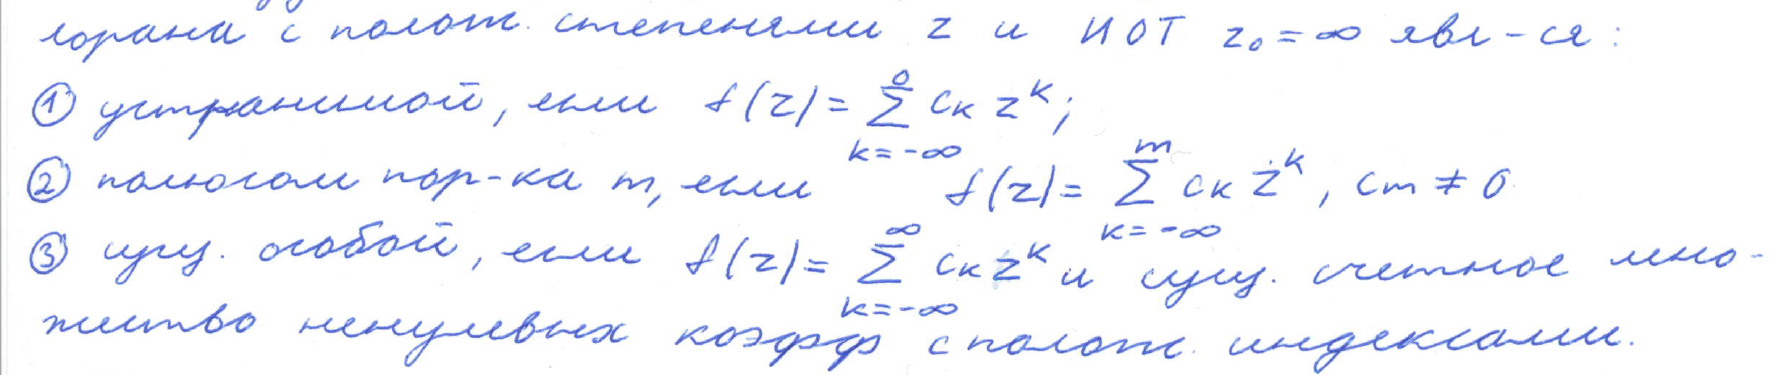 лорана с полож. степенями z и ИОТ z₀ = ∞ явл-ся:
① устранимой, если f(z) = ∑_{k=-∞}^{0} c_k z^k;
② полюсом пор-ка m, если f(z) = ∑_{k=-∞}^{m} c_k z^k, c_m ≠ 0
③ сущ. особой, если f(z) = ∑_{k=-∞}^{∞} c_k z^k и сущ. счетное мно-
жество ненулевых коэфф с полож. индексами.